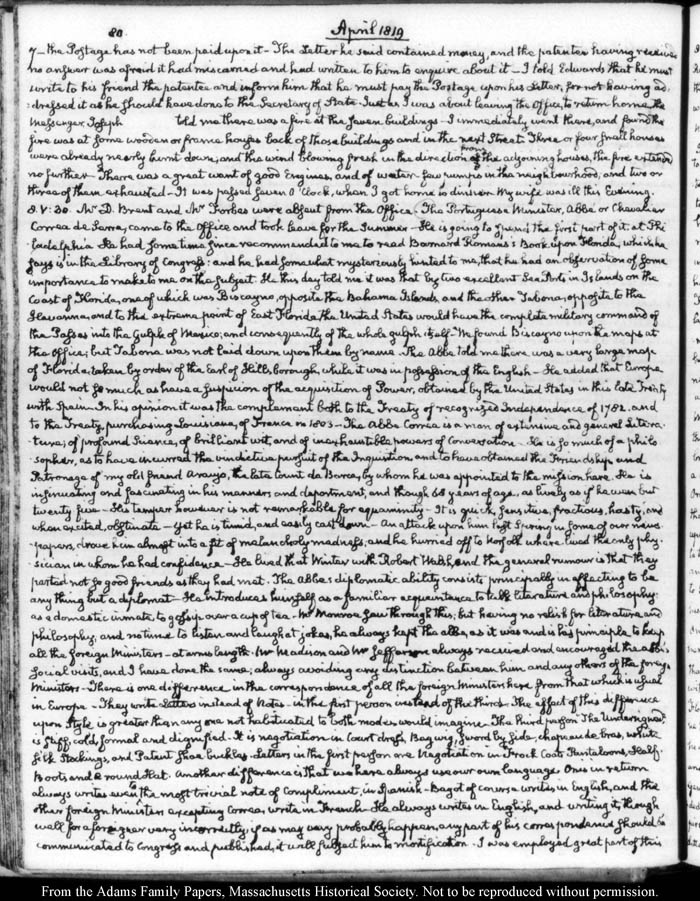 80. April 1819
7_ the Postage has not been paid upon it - The Letter he said contained money, and the patentee having received
no answer was afraid it had miscarried and had written to him to enquire about it - I told Edwards that he must
write to his friend the patentee and inform him that he must pay the Postage upon his Letter, for not having ad-
:dressed it as he should have done to the Secretary of State. Just as I was about leaving the Office, to return home, the
Messenger Joseph told me there was a fire at the Seven buildings - I immediately went there, and found the
fire was at some wooden or frame houses back of those buildings and in the next Street. Three or four small houses
were already nearly burnt down; and the wind blowing fresh in the direction from the adjoining houses, the fire extended
no further - There was a great want of good Engines, and of water - few pumps in the neighbourhood, and two or
three of them exhausted - It was passed seven O'Clock, when I got home to dinner. My wife was ill this Evening.
8. V: 30. Mr. D. Brent and Mr. Forbes were absent from the Office. The Portuguese Minister, Abbé or Chevalier
Correa de Serra, came to the Office and took leave for the Summer - He is going to spend the first part of it at Phi
:ladelphia He had sometime since recommended to me to read Barnard Romans's Book upon Florida, which he
says is in the Library of Congress: and he had somewhat mysteriously hinted to me, that he had an observation of some
importance to make to me on the subject. He this day told me it was that by two excellent Sea Ports in Islands on the
Coast of Florida, one of which was Biscayno, opposite the Bahama Islands, and the other Tabona, opposite to the
Havanna, and to the extreme point of East Florida, the United States would have the complete military command of
the Passes into the Gulph of Mexico; and consequently of the whole gulph itself - We found Biscayno upon the maps at
the Office; but Tabona was not laid down upon them by name. The Abbé told me there was a very large map
of Florida, taken by order of the Earl of Hillsborough, while it was in possession of the English - He added that Europe
would not so much as have a suspicion of the acquisition of Power, obtained by the United States in this late Treaty
with Spain. In his opinion it was the complement both to the Treaty of recognized Independence of 1782. and
to the Treaty, purchasing Louisiana, of France in 1803 - The Abbé Correa is a man of extensive and general Litera-
:ture; of profound Science, of brilliant wit, and of inexhaustible powers of Conversation - He is so much of a philo
:sopher, as to have incurred the vindictive pursuit of the Inquisition, and to have obtained the Friendship and
Patronage of my old friend Araujo, the late Count da Barca, by whom he was appointed to the mission here. He is
insinuating and fascinating in his manners and deportment, and though 68 years of age, as lively as if he were but
twenty five - His temper however is not remarkable for equanimity - It is quick, sensitive, fractious, hasty, and
when excited, obstinate - Yet he is timid, and easily cast down - An attack upon him last Spring in some of our news-
papers, drove him almost into a fit of melancholy madness, and he hurried off to Norfolk where lived the only phy-
:sician in whom he had confidence - He lived that Winter with Robert Walsh, and the general rumour is that they
parted not so good friends as they had met. The Abbé's diplomatic ability consists principally in affecting to be
any thing but a diplomat - He introduces himself as a familiar acquaintance to talk literature and philosophy:
as a domestic inmate, to gossip over a cup of tea - Mr Monroe saw through this; but having no relish for literature and
philosophy, and no time to listen and laugh at jokes, he always kept the abbé, as it was and is his principle to keep
all the foreign Ministers - at arms length. Mr Madison and Mr Jefferson always received and encouraged the abbé's
social visits, and I have done the same; always avoiding any distinction between him and any others of the foreign
Ministers - There is one difference in the correspondence of all the foreign ministers here from that which is usual
in Europe - They write Letters instead of Notes - in the first person instead of the third - The effect of this difference
upon Style is greater than any one not habituated to both modes would imagine. The third person, The Undersigned,
is stiff, cold, formal and dignified. It is negotiation in Court dress, Bag wig, sword by side, chapeau de bras, white
Silk Stockings, and Patent Shoe buckles - Letters in the first person are Negotiation in Frock Coat Pantaloons, Half-
Boots and a round Hat. Another difference is that we here always use our own language. Onis in return
always writes even to the most trivial note of Compliment, in Spanish - Bagot of course writes in English, and the
other foreign Ministers excepting Correa, write in French. He always writes in English, and writing it, though
well for a foreigner very incorrectly; if as may very probably happen, any part of his correspondence should be
communicated to Congress and published, it will subject him to mortification - I was employed great part of this
From the Adams Family Papers, Massachusetts Historical Society. Not to be reproduced without permission.